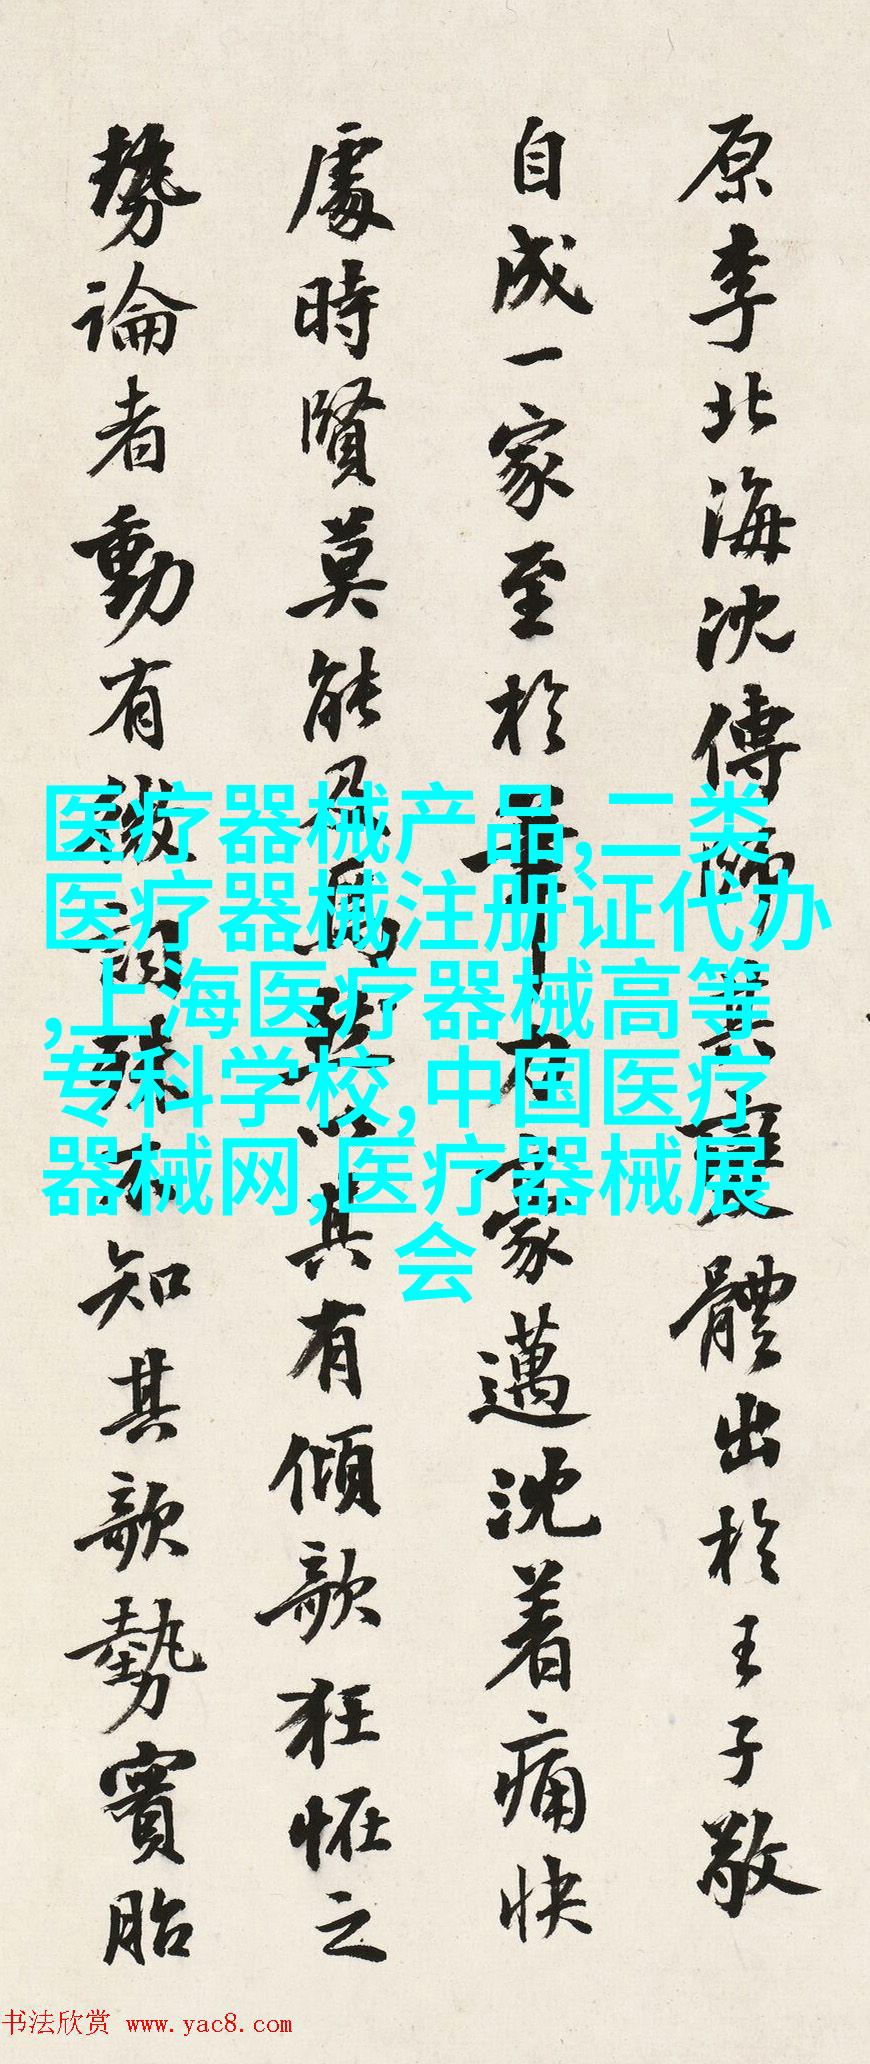 原李北海沈傳師其變體出於王子敬
自成一家至於
家邁沈着痛快
處時賢莫能
以其有傾欹狂怪之
勢論者動有
知其欹勢實胎
医疗器械产品,二类
医疗器械注册证代办
,上海医疗器械高等
专科学校,中国医疗
器械网,医疗器械展
会
书法欣赏 www.yac8.com